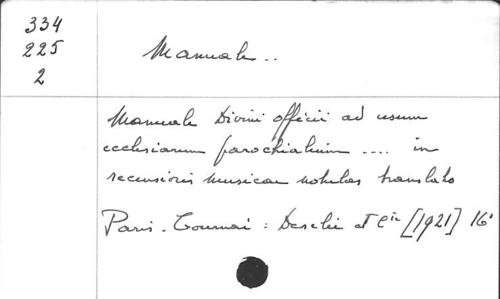 334
225
2
Manuale..
Manuale Divini officii ad usum
ecclesiarum parochialium .... in
recensioris musicae notulas translato
Paris-Tournai: Desclée et Cie [1921] 16°